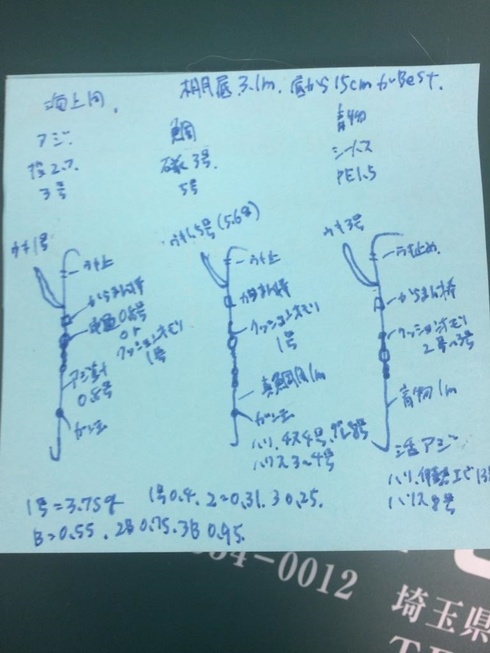 海上同.
棚底3.1m. 底から15cmがBest.
アジ.
投2.7
3号
鯛
磯3号
5号
青物
シーバス
PE1.5
ウキ1号
ウキ止
からまん棒
0.8号
or
クッションオモリ
1号
アジ針
0.8号
ガン玉
ウキ1.5号(5.6g)
ウキ止
からまん棒
クッションオモリ
1号
真鯛用1m
ガン玉
ハリ.チヌ4号
ハリス3〜4号
ウキ3号
ウキ止め
からまん棒
クッションオモリ
2号〜3号
青物1m
活アジ
ハリ.
ハリス8号
1号=3.75g 1号0.4. 2=0.31. 3 0.25.
B=0.55. 2B 0.75. 3B 0.95.
4-0012
埼玉県